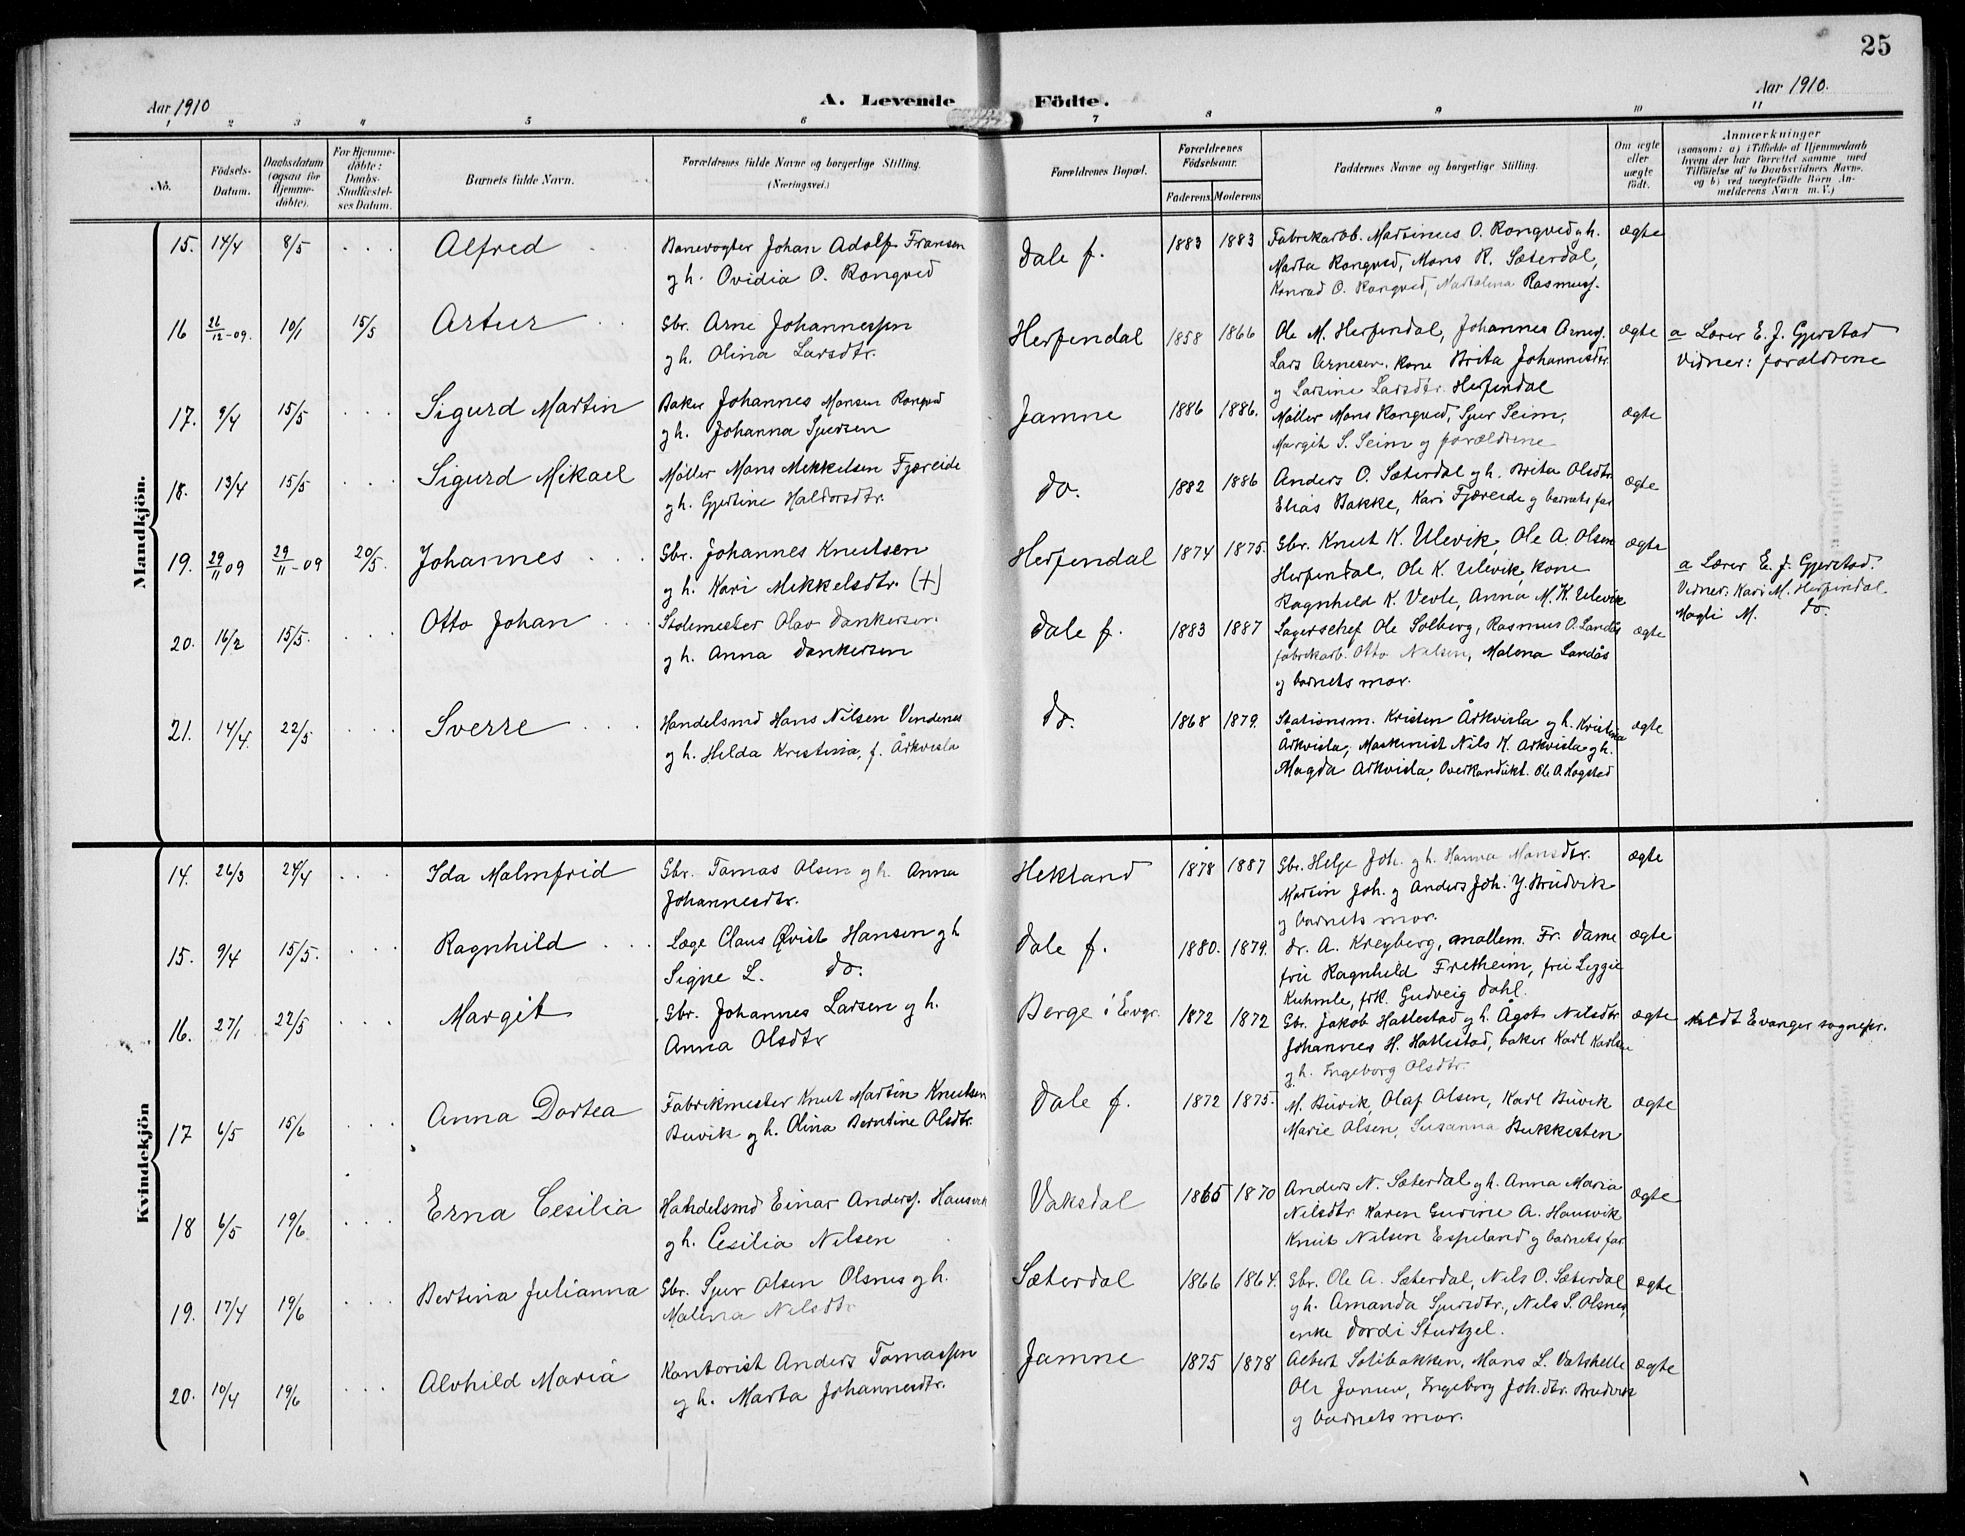 25
Aar 1910
A. Levende Födte.
Aar 1910.
1 2 3 4 5 6 7 8 9 10 11
No.
Födsels-Datum.
Daabsdatum (ogsaa for Hjemme-döbte).
For Hjemme-döbte: Daabs-Stadfæstel-ses Datum.
Barnets fulde Navn.
Forældrenes fulde Navne og borgerlige Stilling. (Næringsvei.)
Forældrenes Bopæl.
Forældrenes Födselsaar.
Faderens. Moderens.
Faddernes Navne og borgerlige Stilling.
Om ægte eller uægte födt.
Anmærkninger
(saasom: a) i Tilfælde af Hjemmedaab
hvem der har forrettet samme med
Tilföielse af to Daabsvidners Navne,
og b) ved uægtefödte Börn An-
melderens Navn m. V.)
Mandkjön.
15. 14/4 8/5 . . . Alfred Banevogter Johan Adolf Fransen
g h. Ovidia O. Rongved
Dale f. 1883 1883 Fabrikarb. Martinus O. Rongved g h. ægte
Marta Rongved, Mons R. Sæterdal,
Konrad O. Rongved, Rasmusj.
16 26/12-09. 10/1 15/5 Artur Gbr. Arne Johannessen
g h. Olina Larsdtr.
Herfendal 1858 1866 Ole M. Herfendal, Johannes Arnesj. ægte a Lærer E. J. Gjerstad
Lars Arnesen, kone Brita Johannesdtr. Vidner: forældrene
g Larsine Larsdtr. Herfendal
17. 9/4 15/5 . . . Sigurd Martin Baker Johannes Monsen Rongved
g h. Johanna Sjursen
Jamne 1886 1886. Møller Mons Rongved, Sjur Seim, ægte
Margit S. Seim g forældrene
18. 13/4 15/5 . . . Sigurd Mikael Møller Mons Mikkelsen Fjæreide
g h. Gjertine Haldorsdtr.
do. 1882 1886 Anders O. Sæterdal g h. Brita Olsdtr. ægte
Elias Bakke, Kari Fjæreide g barnets far
19. 29/11 09 29/11-09 20/5. Johannes Gbr. Johannes Knutsen
g h. Kari Mikkelsdtr. (+)
Herfendal 1874 1875. Gbr. Knut K. Ulevik, Ole A. Olsen ægte a Lærer E. J. Gjerstad.
Herfendal, Ole K. Ulevik, kone Vidner: Kari M. Herfendal.
Ragnhild K. Vevle, Anna M. K. Ulevik Magli M. do.
20. 16/2 15/5. . . . Otto Johan Stolemester Olav Dankersen
g h. Anna Dankersen
Dale f. 1883 1887 Lagerschef Ole Solberg, Rasmus O. Landås ægte
fabrikarb. Otto Nilsen, Malena Landås
g barnets mor.
21. 14/4. 22/5 . . . Sverre Handelsmd Hans Nilsen Vendenes
g h. Hilda Kristina, f. Årkvisla
do. 1868 1879. Stationsm. Kristen Årkvisla g h. Kristina ægte
Årkvisla, Maskinist Nils K. Arkvisla g h.
Magda Arkvisla, Overkondukt. Ole A. Hogstad
Kvindekjön
14. 26/3 24/4 . . . Ida Malmfrid Gbr. Tomas Olsen g h. Anna
Johannesdtr.
Hekland 1878 1887 Gbr. Helge Joh. g h. Hanna Monsdtr. ægte
Martin Joh. g Anders Joh. Y. Brudvik
g barnets mor.
15. 9/4 15/5. . . . Ragnhild Læge Claus Qvist Hansen g h
Signe L. do.
Dale f. 1880. 1879. dr. A. Kreyberg, mallem. Fr. Dame ægte
frü Ragnhild Fretheim, frü Lizzie
Kuhmle, frk. Gudveig Dahl.
16. 27/1 22/5 . . . Margit Gbr. Johannes Larsen g h.
Anna Olsdtr
Berge i Evgr. 1872 1872 Gbr. Jakob Hatlestad g h. Ågot Nilsdtr ægte Meldt Evanger sognepr.
Johannes H. Hatlestad, baker Karl Karlsen
g h. Ingeborg Olsdtr.
17 6/5 15/6 . . . Anna Dortea Fabrikmester Knut Martin Knutsen
Buvik g h. Olina Berntine Olsdtr.
Dale f. 1872 1875. M. Buvik, Olaf Olsen, Karl Buvik ægte
Marie Olsen, Susanna Bukkesten
18 6/5 19/6 . . . Erna Cesilia Handelsmd Einar Andersj. Hausvik
g h. Cesilia Nilsen
Vaksdal 1865 1870 Anders N. Sæterdal g h. Anna Maria ægte
Nilsdtr. Karen Gurine A. Hausvik
Knut Nilsen Espeland g barnets far
19. 17/4 19/6 . . . Bertina Julianna Gbr. Sjur Olsen Olsnes g h.
Malena Nilsdtr
Sæterdal 1866 1864. Gbr. Ole A. Sæterdal, Nils O. Sæterdal ægte
g h. Amanda Sjursdtr., Nils S. Olsnes,
enke Dordi Sturtzel.
20. 10/4 19/6 . . . Alvhild Maria Kontorist Anders Tomassen
g h. Marta Johannesdtr.
Jamne 1875 1878 Albert Solibakken, Mons L. Vatshelle ægte
Ole Jamne, Ingeborg Joh.dtr. Brudvik
g barnets mor.